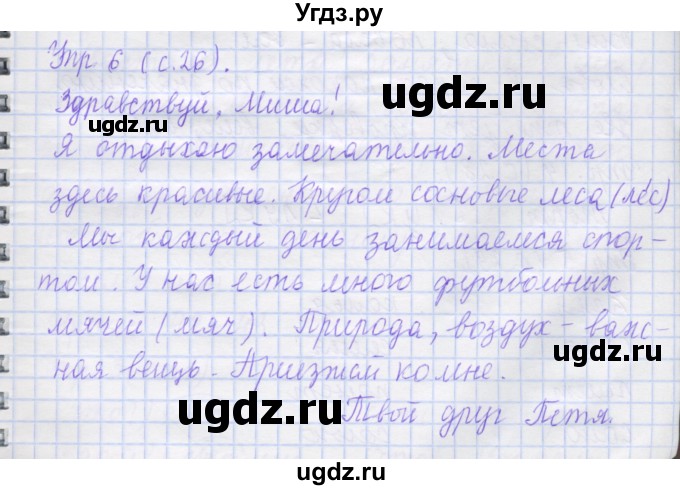 Угдз.ру
Упр 6 (с.26).
Здравствуй, Миша!
ugdz.ru
ugdz.ru
Я отдыхаю замечательно. Места
здесь красивые. Кругом сосновые леса (лес)
Мы каждый день занимаемся спор-
том. У нас есть много футбольных
мячей (мяч). Природа, воздух - важ-
ная вещь. Приезжай ко мне.
ugdz.ru
ugdz.ru
Твой друг Петя.
ugdz.ru